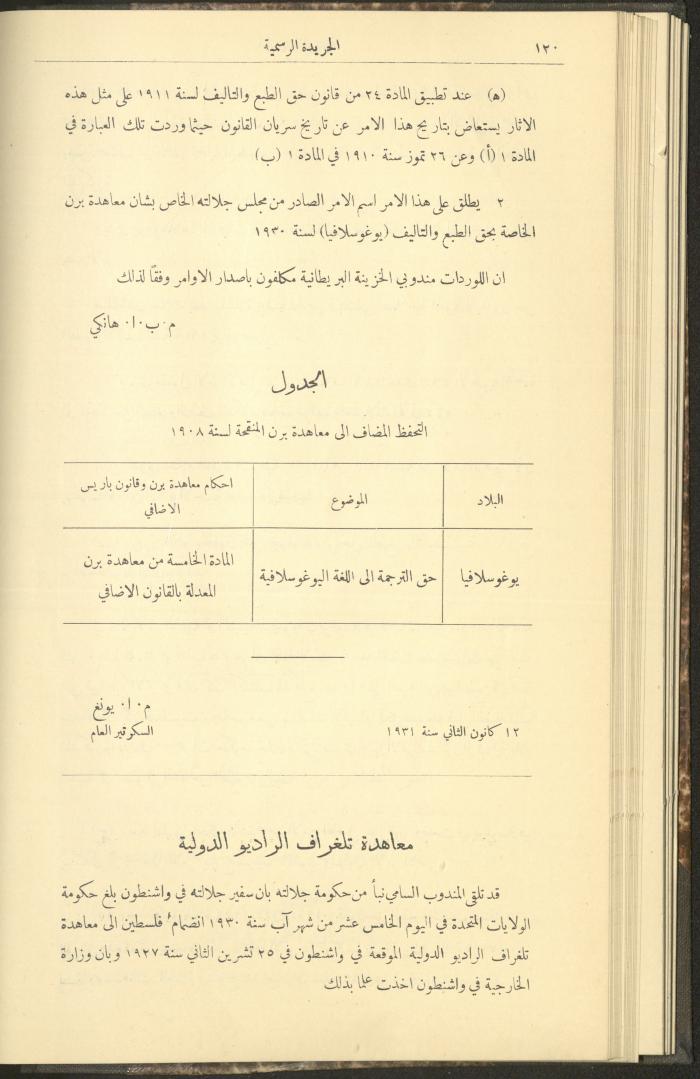 ١٢٠
الجريدة الرسمية
(ه) عند تطبيق المادة ٢٤ من قانون حق الطبع والتاليف لسنة ١٩١١ على مثل هذه
الاثار يستعاض بتاريخ هذا الامر عن تاريخ سريان القانون حيثما وردت تلك العبارة في
المادة ١ (أ) وعن ٢٦ تموز سنة ١٩١٠ في المادة ١ (ب)
٢ يطلق على هذا الامر اسم الامر الصادر من مجلس جلالته الخاص بشان معاهدة برن
الخاصة بحق الطبع والتاليف (يوغوسلافيا) لسنة ١٩٣٠
ان اللوردات مندوبي الخزينة البريطانية مكلفون باصدار الاوامر وفقاً لذلك
م٠ب٠ا٠ هانكي
الجدول
التحفظ المضاف الى معاهدة برن المنقحة لسنة ١٩٠٨
البلاد
الموضوع
احكام معاهدة برن وقانون باريس
الاضافي
يوغوسلافيا
حق الترجمة الى اللغة اليوغوسلافية
المادة الخامسة من معاهدة برن
المعدلة بالقانون الاضافي
م٠ا٠ يونغ
١٢ كانون الثاني سنة ١٩٣١
السكرتير العام
معاهدة تلغراف الراديو الدولية
قد تلقى المندوب السامي نبأ من حكومة جلالته بان سفير جلالته في واشنطون بلغ حكومة
الولايات المتحدة في اليوم الخامس عشر من شهر آب سنة ١٩٣٠ انضمام فلسطين الى معاهدة
تلغراف الراديو الدولية الموقعة في واشنطون في ٢٥ تشرين الثاني سنة ١٩٢٧ وبان وزارة
الخارجية في واشنطون اخذت علما بذلك